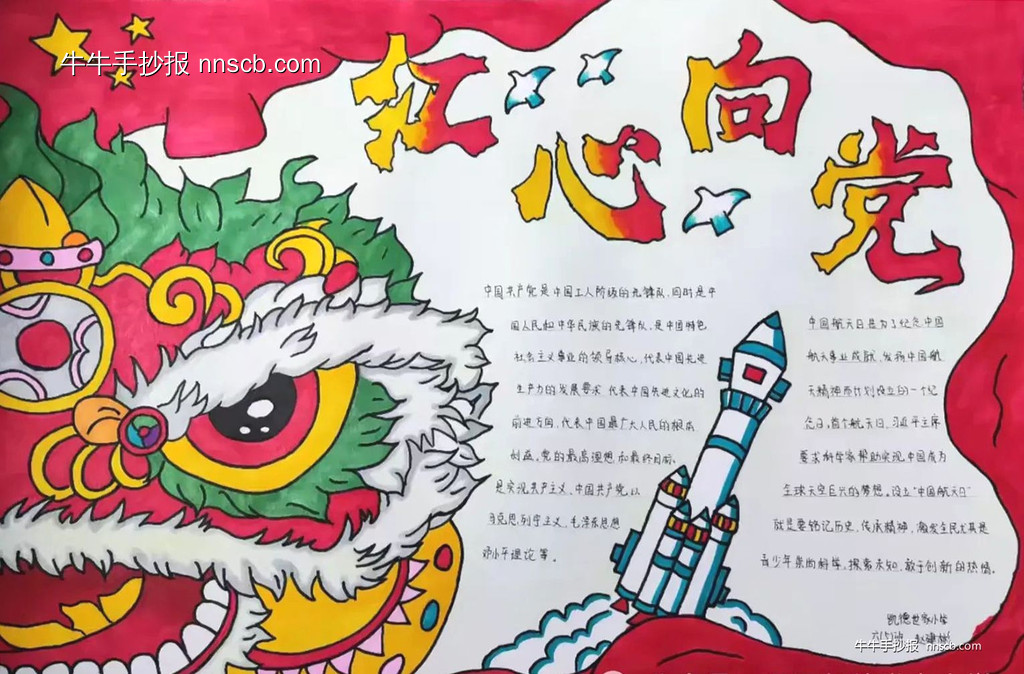 牛牛手抄报 nnscb.com
红心向党
中国共产党是中国工人阶级的先锋队,同时是中
国人民和中华民族的先锋队,是中国特色
社会主义事业的领导核心,代表中国先进
生产力的发展要求 代表中国先进文化的
前进方向,代表中国最广大人民的根本
利益。党的最高理想和最终目标、
是实现共产主义。中国共产党以
马克思,列宁主义、毛泽东思想
邓小平理论等。
中国航天日是为了纪念中国
航天事业成就,发扬中国航
天精神而计划设立的一个纪
念日,首个航天日,习近平主席
要求科学家帮助实现中国成为
全球天空巨兴的梦想。设立“中国航天日”
就是要铭记历史、传承精神,激发全民尤其是
青少年崇尚科学,探索未知、敢于创新的热情。
凯德世家小学
牛牛手抄报 nnscb.com